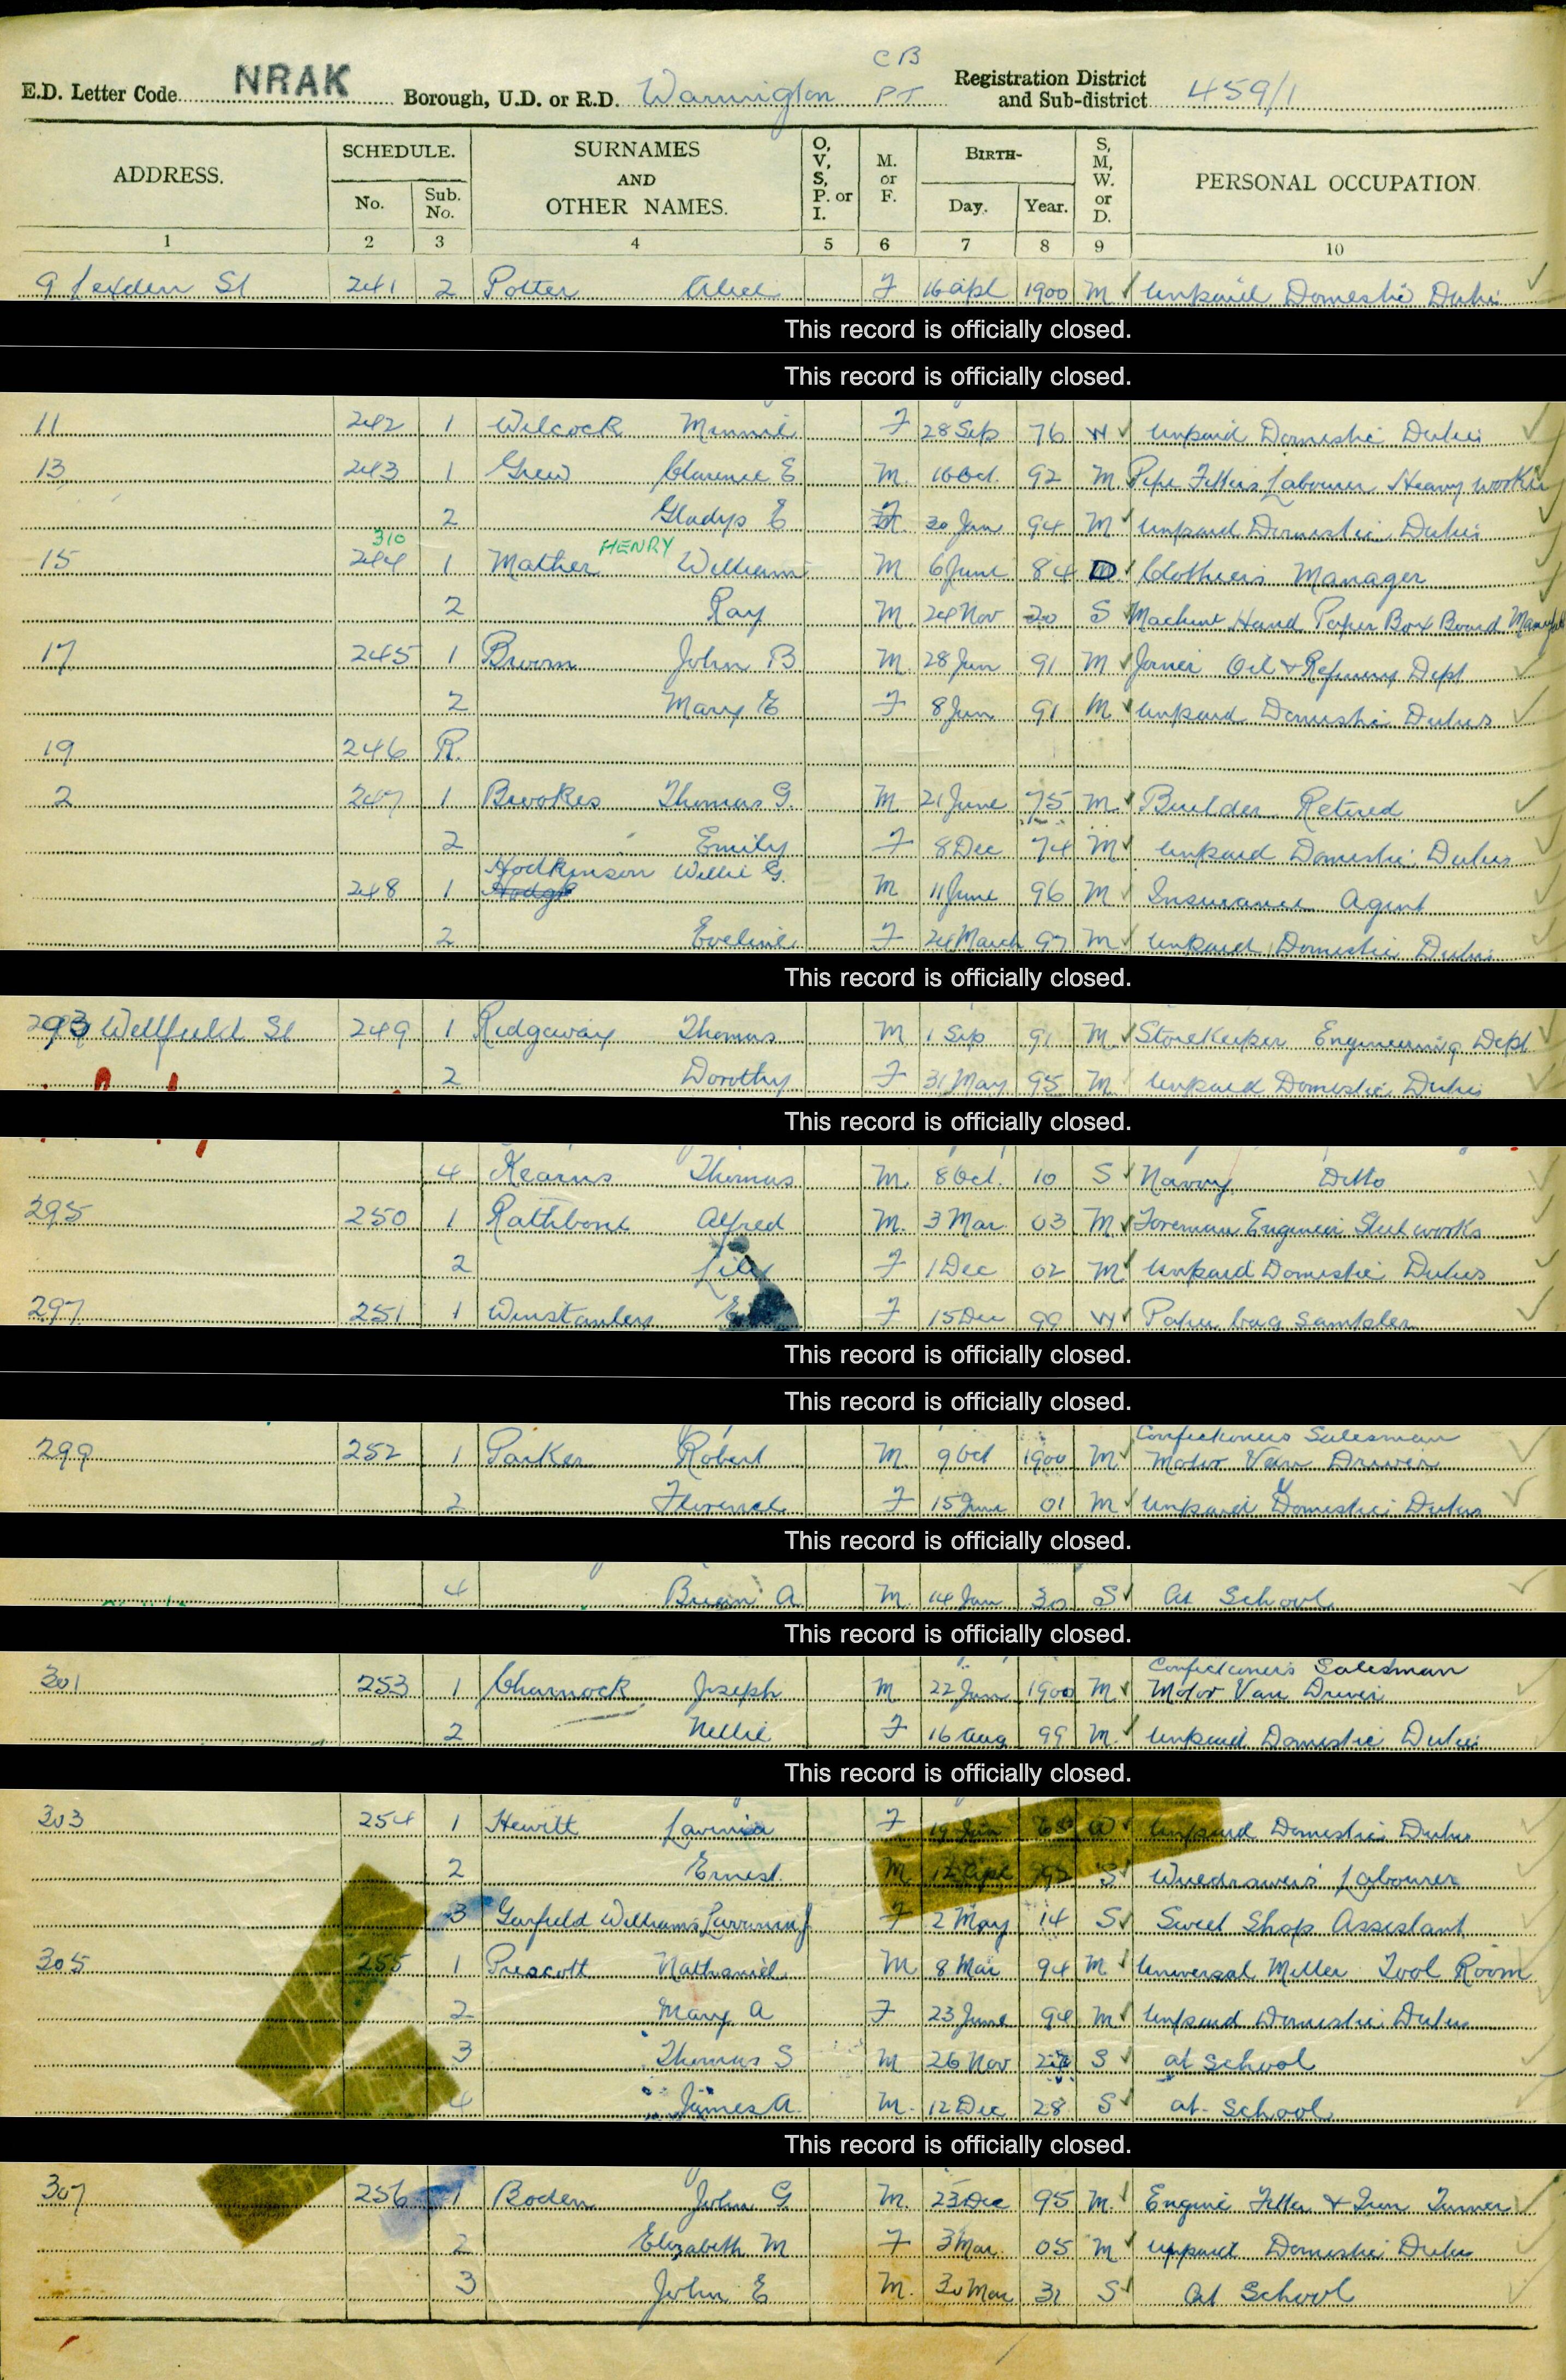 C B
E.D. Letter Code NRAK Borough, U.D. or R.D. Warrington PT Registration District and Sub-district 459/1
ADDRESS. SCHEDULE. No. Sub. No. SURNAMES AND OTHER NAMES. O, V, S, P. or I. M. or F. BIRTH- Day. Year. S, M, W. or D. PERSONAL OCCUPATION.
1 2 3 4 5 6 7 8 9 10
9 Lexden St 241 2 Potter Alice F 16 Apl 1900 M Unpaid Domestic Duties
This record is officially closed.
This record is officially closed.
11 242 1 Wilcock Minnie F 28 Sep 76 W Unpaid Domestic Duties
13 243 1 Grew Clarence E M 16 Oct 92 M Pipe Fitters Labourer Heavy Worker
2 Gladys E F 30 Jan 94 M Unpaid Domestic Duties
310 HENRY
15 244 1 Mather William M 6 June 84 D Clothiers Manager
2 Ray M 24 Nov 20 S Machine Hand Paper Box Board
17 245 1 Broom John B M 28 Jun 91 M Joiner Oil & Refinery Dept
2 Mary E F 8 Jun 91 M Unpaid Domestic Duties
19 246 R.
2 247 1 Brookes Thomas G. M 21 June 75 M Builder Retired
2 Emily F 8 Dec 74 M Unpaid Domestic Duties
Hodkinson Willie G.
248 1 M 11 June 96 M Insurance Agent
2 Eveline F 24 March 97 M Unpaid Domestic Duties
This record is officially closed.
293 Wellfield St 249 1 Ridgway Thomas M 1 Sep 91 M Storekeeper Engineering Dept
2 Dorothy F 31 May 95 M Unpaid Domestic Duties
This record is officially closed.
4 Kearns Thomas M 8 Oct 10 S Navvy Ditto
295 250 1 Rathbone Alfred M 3 Mar 03 M Foreman Engineer Steelworks
2 Lily F 1 Dec 02 M Unpaid Domestic Duties
297 251 1 Winstanley F 15 Dec 99 W Paper bag Sampler
This record is officially closed.
This record is officially closed.
Confectioners Salesman
299 252 1 Parker Robert M 9 Oct 1900 M Motor Van Driver
2 Florence F 15 June 01 M Unpaid Domestic Duties
This record is officially closed.
4 Brian A M 14 Jan 30 S At School
This record is officially closed.
Confectioners Salesman
301 253 1 Charnock Joseph M 22 Jun 1900 M Motor Van Driver
2 Nellie F 16 Aug 99 M Unpaid Domestic Duties
This record is officially closed.
303 254 1 Hewitt Lavinia F 19 Jan 68 W Unpaid Domestic Duties
2 Ernest M 12 Apl 92 S Wiredrawers Labourer
3 Garfield Williams F 2 May 14 S Sweet Shop Assistant
305 255 1 Prescott Nathaniel M 8 Mar 94 M Universal Miller Tool Room
2 Mary A F 23 June 94 M Unpaid Domestic Duties
3 Thomas S M 26 Nov S at School
4 James A. M. 12 Dec 28 S at School
This record is officially closed.
307 256 1 Boden John G M. 23 Dec 95 M Engine Fitter & Iron Turner
2 Elizabeth M F 3 Mar 05 M Unpaid Domestic Duties
3 John E M. 30 Mar 31 S At School